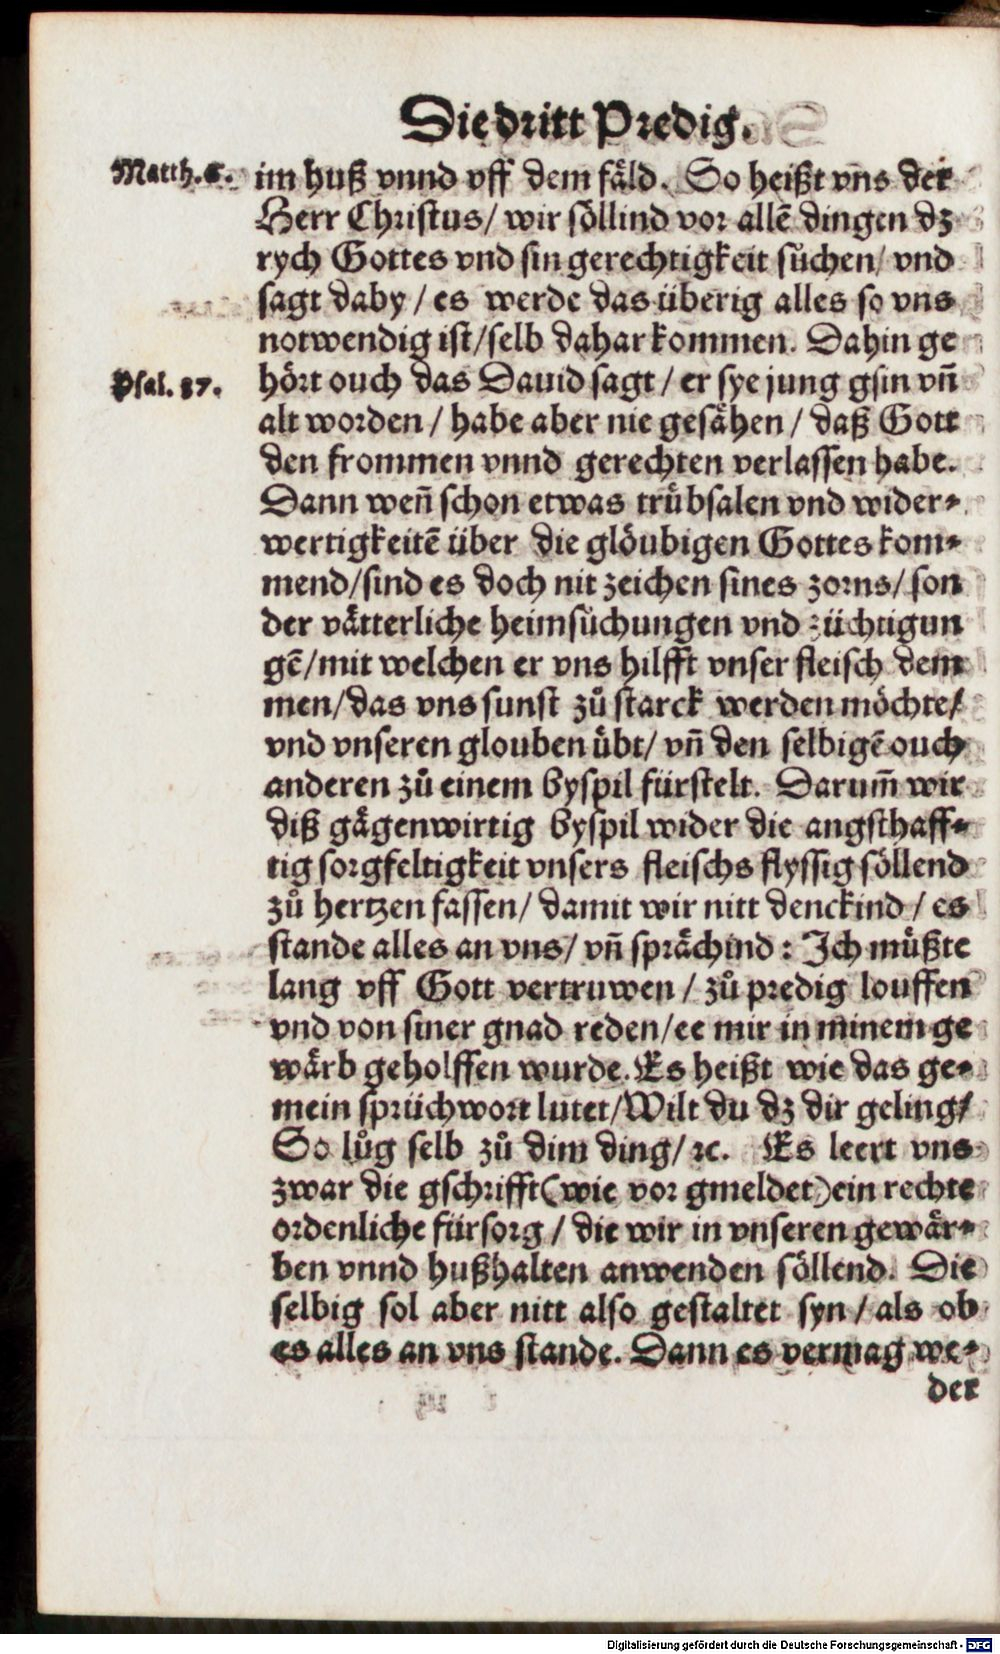 Die dritt Predig.
Matth. 6. im huß vnnd vff dem fäld. So heißt vns der
Herr Christus/ wir söllind vor allē dingen dz
rych Gottes vnd sin gerechtigkeit suͦchen/ vnd
sagt daby / es werde das überig alles so vns
notwendig ist/selb dahar kommen. Dahin ge
Psal. 37. hört ouch das Dauid sagt / er sye jung gsin vn̄
alt worden / habe aber nie gesähen / daß Gott
den frommen vnnd gerechten verlassen habe.
Dann wen̄ schon etwas truͤbsalen vnd wider⸗
wertigkeitē über die glöubigen Gottes kom⸗
mend/sind es doch nit zeichen sines zorns/ son
der vätterliche heimsuͦchungen vnd züchtigun
gē/mit welchen er vns hilfft vnser fleisch dem
men/das vns sunst zuͦ starck werden möchte/
vnd vnseren glouben uͤbt/ vn̄ den selbigē ouch
anderen zuͦ einem byspil fürstelt. Darum̄ wir
diß gägenwirtig byspil wider die angsthaff⸗
tig sorgfeltigkeit vnsers fleischs flyssig söllend
zuͦ hertzen fassen/ damit wir nitt denckind / es
stande alles an vns/ vn̄ sprächind : Ich muͤßte
lang vff Gott vertruwen / zuͦ predig louffen
vnd von siner gnad reden/ee mir in minem ge
wärb geholffen wurde. Es heißt wie das ge⸗
mein sprüchwort lutet/Wilt du dz dir geling/
So luͦg selb zuͦ dim ding/ ꝛc. Es leert vns
zwar die gschrifft(wie vor gmeldet)ein rechte
ordenliche fürsorg / die wir in vnseren gewär⸗
ben vnnd hußhalten anwenden söllend. Die
selbig sol aber nitt also gestaltet syn / als ob
es alles an vns stande. Dann es vermag we⸗
der
Digitalisierung gefördert durch die Deutsche Forschungsgemeinschaft - DFG